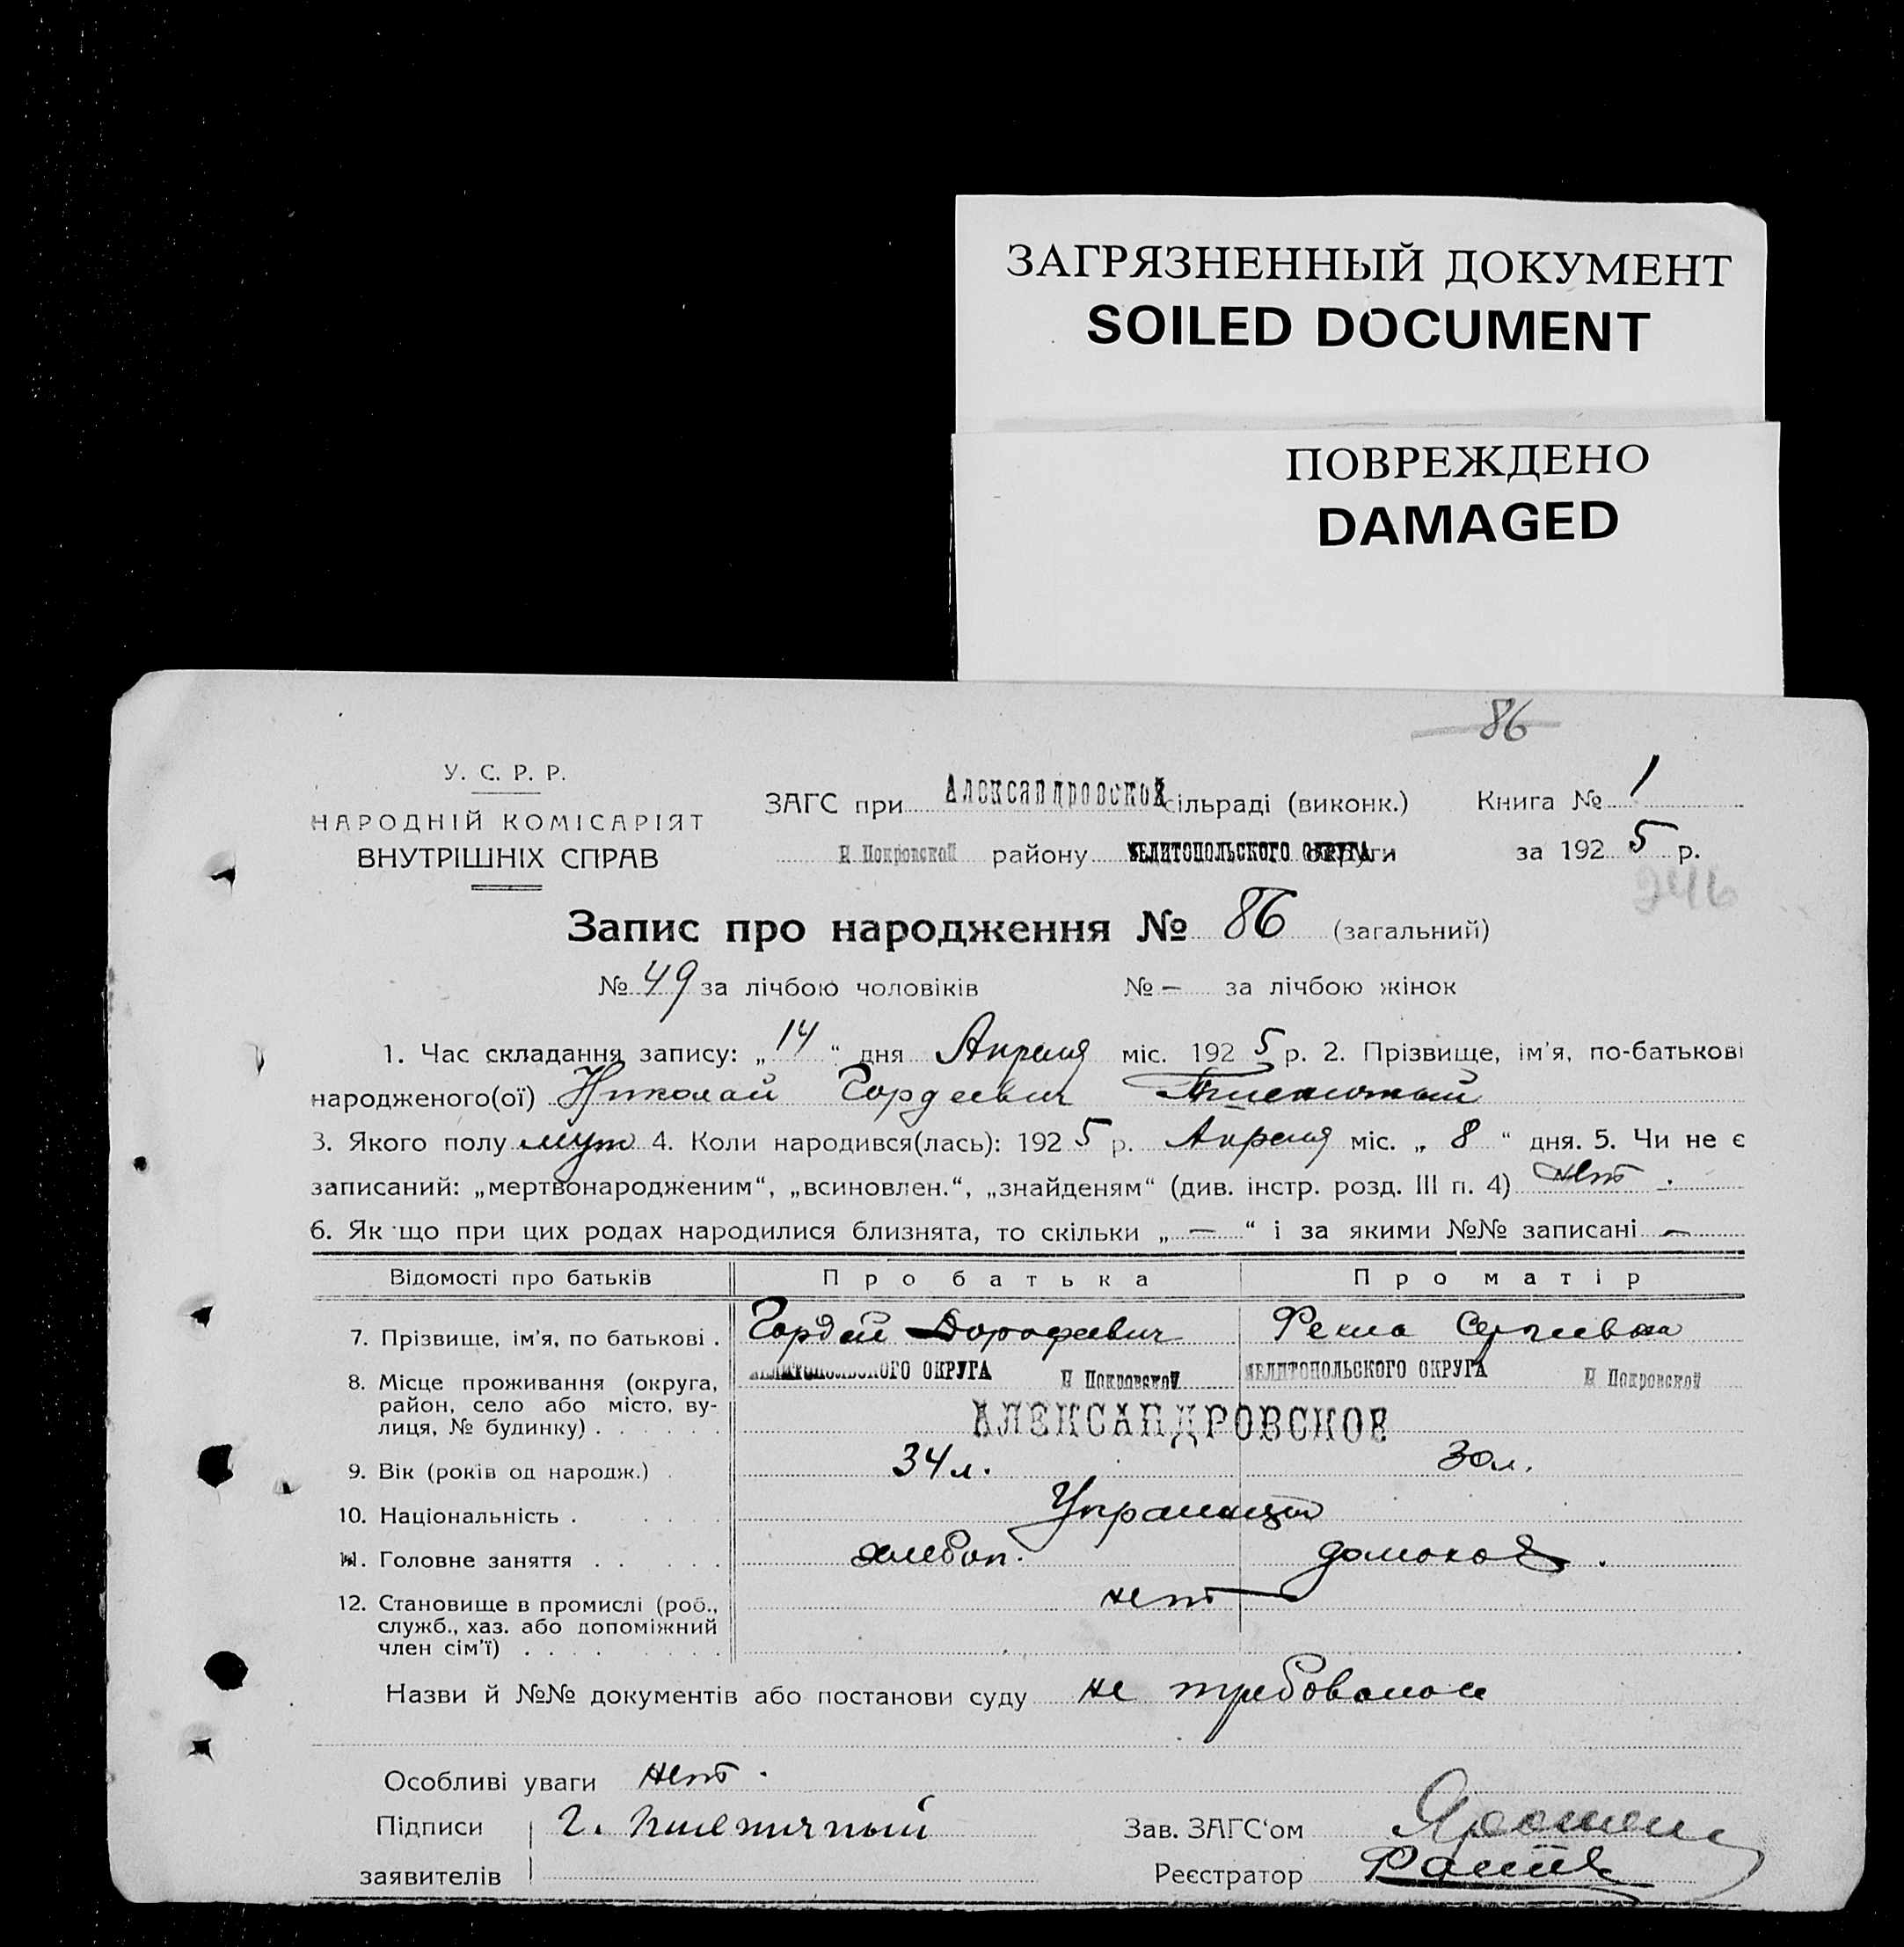 ЗАГРЯЗНЕННЫЙ ДОКУМЕНТ
SOILED DOCUMENT
ПОВРЕЖДЕНО
DAMAGED
86
У. С. Р. Р.
НАРОДНІЙ КОМІСАРІЯТ
ВНУТРІШНІХ СПРАВ
ЗАГС при Александровской сільраді (виконк.) Книга № 1
Н Покровской району МЕЛИТОПОЛЬСКОГО ОКРУГА округи за 1925 р.
246
Запис про народження № 86 (загальний)
№ 49 за лічбою чоловіків № — за лічбою жінок
1. Час складання запису: „14“ дня Апреля міс. 1925 р. 2. Прізвище, ім'я, по-батькові
народженого(ої) Николай Гордеевич Пшеничный
3. Якого полу муж 4. Коли народився(лась): 1925 р. Апреля міс. „8“ дня. 5. Чи не є
записаний: „мертвонародженим“, „всиновлен.“, „знайденям“ (див. інстр. розд. III п. 4) нет.
6. Як що при цих родах народилися близнята, то скільки „—“ і за якими №№ записані —
Відомості про батьків Про батька Про матір
7. Прізвище, ім'я, по батькові . Гордей Дорофеевич Фекла Сергеевна
8. Місце проживання (округа, МЕЛИТОПОЛЬСКОГО ОКРУГА Н Покровской МЕЛИТОПОЛЬСКОГО ОКРУГА Н Покровской
район, село або місто, ву-
лиця, № будинку) . . . . . . АЛЕКСАНДРОВСКОЕ
9. Вік (років од народж.) . 34 л. 30 л.
10. Національність . . . . . Украинцы
11. Головне заняття . . . . . хлебоп. домохоз.
12. Становище в промислі (роб., нет
служб., хаз. або допоміжний
член сім'ї) . . . . . . . . .
Назви й №№ документів або постанови суду не требовалось
Особливі уваги нет.
Підписи Г. Пшеничный Зав. ЗАГС'ом
заявителів Реєстратор